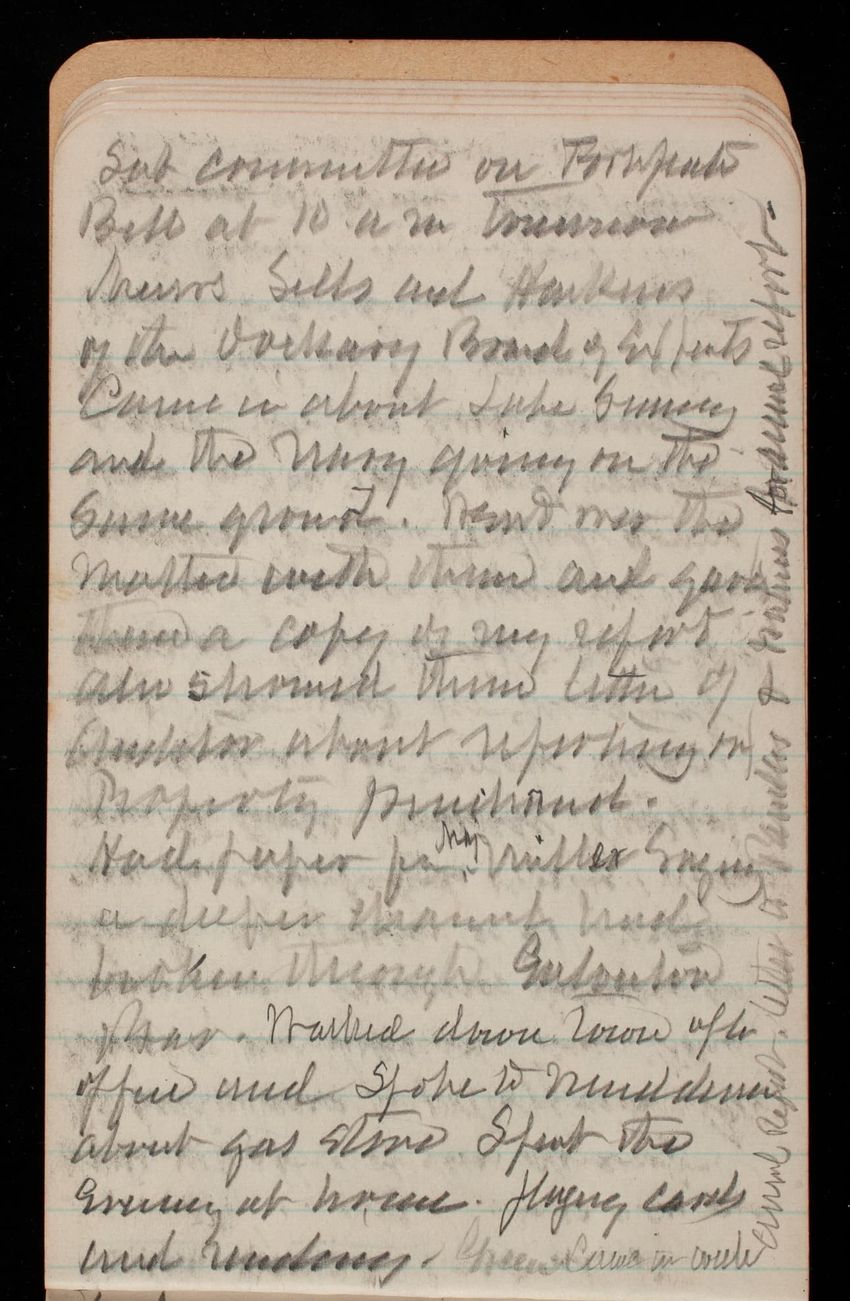 Sub committee on Fortificatn
Bill at 10 a m tomorrow
Messrs Sells and Harkins
of the Dockery Board of Experts
Came in about Lake Survey
and the Navy going on the
Same ground. Went over the
matter with them and gave
them a copy of my report
also showed them letter of
Auditor about reporting on
Property purchased.
Had paper fr Maj Miller Saying
a deeper channel had
broken through Galveston
Bar. Walked down town aftr
office and Spoke to
about gas stove Spent the
Evening at home. Playing cards
and reading. Green Came in with
annual Report. letter to & Mathews for annual report.